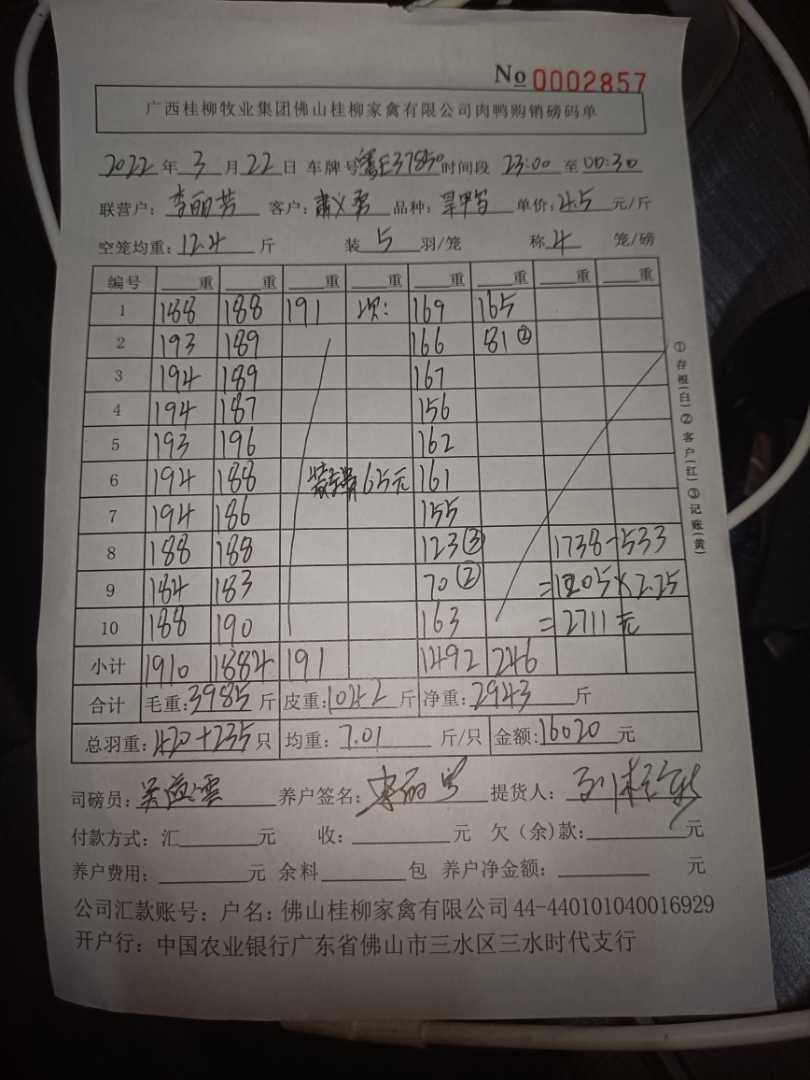 No 0002857
广西桂柳牧业集团佛山桂柳家禽有限公司肉鸭购销磅码单
2022 年 3 月 22 日 车牌号 粤E37850 时间段 23:00 至 00:30
联营户: 李丽芳 客户: 品种: 单价: 4.5 元/斤
空笼均重: 12.4 斤 装 5 羽/笼 称 4 笼/磅
编号 重 重 重 重 重 重 重 重
1 188 188 191 次: 169 165
2 193 189 166 81②
3 194 189 167
4 194 187 156
5 193 196 162
6 194 188 装车费65元 161
7 194 186 155
8 188 188 123③ 1738-533
9 184 183 70② =1205×2.25
10 188 190 163 =2711元
小计 1910 1884 191 1492 246
合计 毛重: 3985 斤 皮重: 1042 斤 净重: 2943 斤
总羽重: 420+235 只 均重: 7.01 斤/只 金额: 16020 元
司磅员: 养户签名: 提货人:
付款方式: 汇 元 收: 元 欠(余)款: 元
养户费用: 元 余料 包 养户净金额: 元
公司汇款账号: 户名: 佛山桂柳家禽有限公司 44-440101040016929
开户行: 中国农业银行广东省佛山市三水区三水时代支行
①存根(白)②客户(红)③记账(黄)